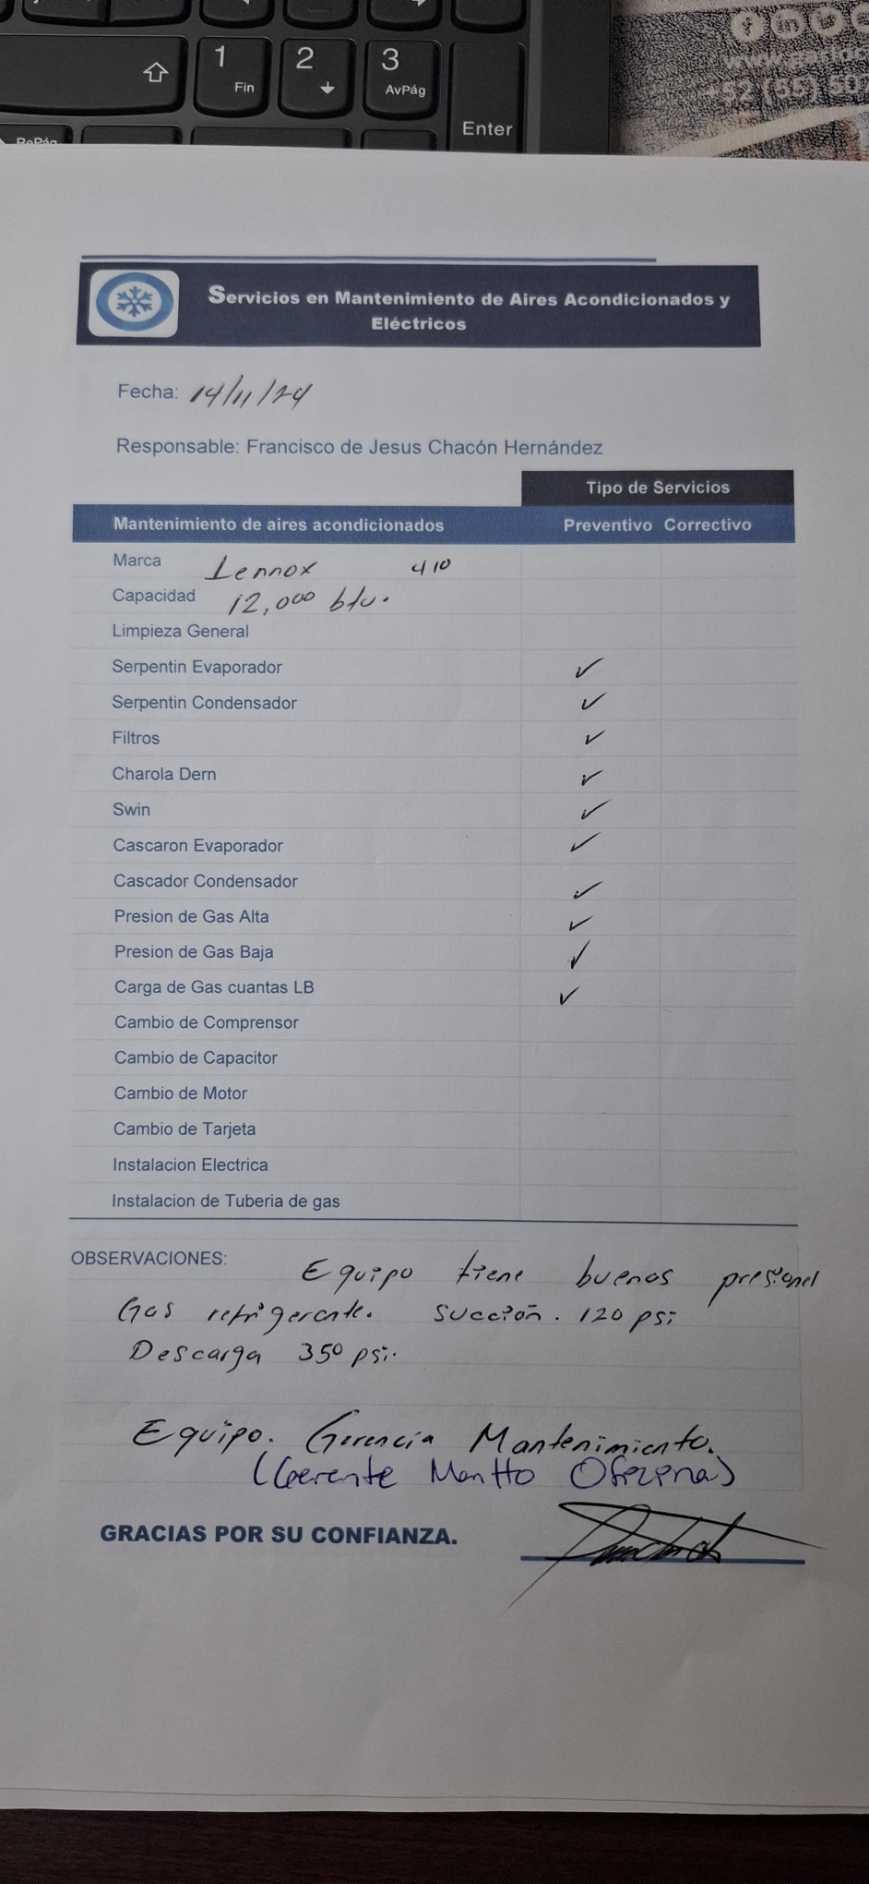 1
Fin
2
3
AvPág
Enter
RePág
+52 (55)
Servicios en Mantenimiento de Aires Acondicionados y
Eléctricos
Fecha: 14/11/24
Responsable: Francisco de Jesus Chacón Hernández
Tipo de Servicios
Mantenimiento de aires acondicionados Preventivo Correctivo
Marca Lennox 410
Capacidad 12,000 btu.
Limpieza General
Serpentin Evaporador ✓
Serpentin Condensador ✓
Filtros ✓
Charola Dern ✓
Swin ✓
Cascaron Evaporador ✓
Cascador Condensador ✓
Presion de Gas Alta ✓
Presion de Gas Baja ✓
Carga de Gas cuantas LB ✓
Cambio de Comprensor
Cambio de Capacitor
Cambio de Motor
Cambio de Tarjeta
Instalacion Electrica
Instalacion de Tuberia de gas
OBSERVACIONES: Equipo tiene buenas
Gas refrigerante. Succión. 120 psi
Descarga 350 psi.
Equipo. Gerencia Mantenimiento.
(Gerente Mantto Oficina)
GRACIAS POR SU CONFIANZA.